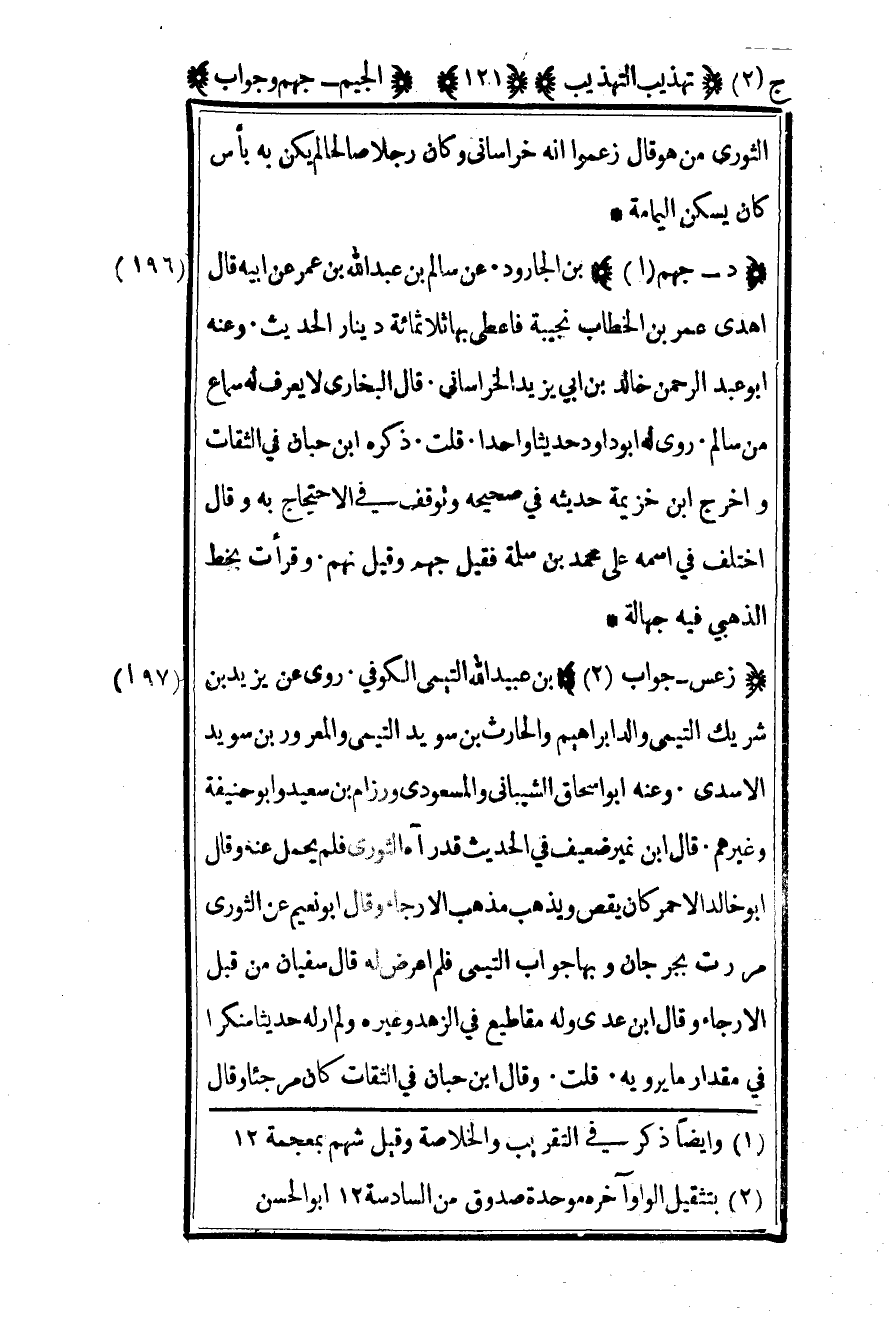 ج (٢) ﴿ تهذيب التهذيب ﴾ ﴿ ١٢١ ﴾ ﴿ الجيم ـ جهم وجواب ﴾
الثورى من هو قال زعموا انه خراسانى وكان رجلا صالحا لم يكن به بأس
كان يسكن اليمامة *
﴿ د ـ جهم (١) ﴾ بن الجارود ٠ عن سالم بن عبدالله بن عمر عن ابيه قال (١٩٦)
اهدى عمر بن الخطاب نجيبة فاعطى بها ثلاثمائة دينار الحديث ٠ وعنه
ابو عبد الرحمن خالد بن ابي يزيد الخراساني ٠ قال البخارى لا يعرف له سماع
من سالم ٠ روى له ابوداود حديثا واحدا ٠ قلت ٠ ذكره ابن حبان في الثقات
و اخرج ابن خزيمة حديثه في صحيحه وتوقف في الاحتجاج به و قال
اختلف في اسمه على محمد بن سلمة فقيل جهم وقيل نهم ٠ و قرأت بخط
الذهبي فيه جهالة *
﴿ زعس ـ جواب (٢) ﴾ بن عبيدالله التيمى الكوفي ٠ روى عن يزيد بن (١٩٧)
شريك التيمى والد ابراهيم والحارث بن سويد التيمى والمعرور بن سويد
الاسدى ٠ وعنه ابو اسحاق الشيبانى والمسعودى ورزام بن سعيد وابوحنيفة
وغيرهم ٠ قال ابن نمير ضعيف في الحديث قد رآه الثورى فلم يحمل عنه وقال
ابو خالد الاحمر كان يقص ويذهب مذهب الارجاء وقال ابو نعيم عن الثورى
مررت بجرجان و بها جواب التيمى فلم اعرض له قال سفيان من قبل
الارجاء و قال ابن عدى وله مقاطيع في الزهد وغيره ولم ار له حديثا منكرا
في مقدار ما يرويه ٠ قلت ٠ وقال ابن حبان في الثقات كان مرجئا وقال
(١) وايضاً ذكر في التقريب والخلاصة وقيل شهم بمعجمة ١٢
(٢) بتثقيل الواو آخره موحدة صدوق من السادسة ١٢ ابو الحسن